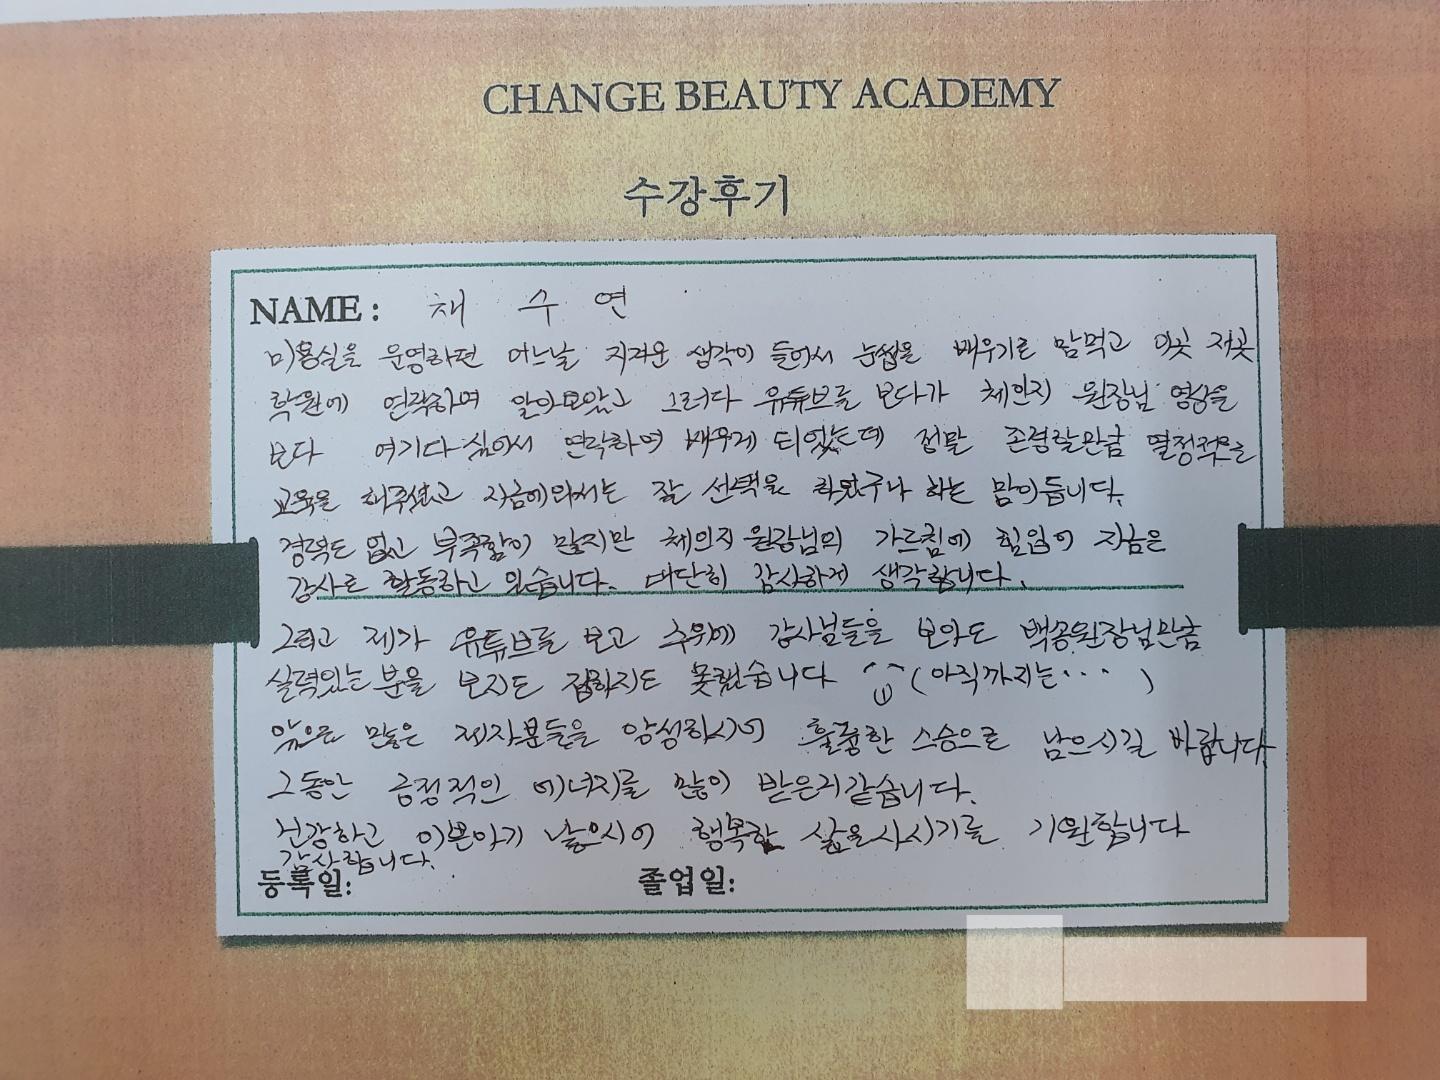 CHANGE BEAUTY ACADEMY
수강후기
NAME : 채 수 연
미용실을 운영하면 어느날 지겨운 생각이 들어서 눈썹을 배우기로 맘먹고 이곳 저곳
학원에 연락하며 알아보았고 그러다 유튜브를 보다가 체인지 원장님 영상을
보다 여기다 싶어서 연락하여 배우게 되었는데 정말 존경할만큼 열정적으로
교육을 해주셨고 지금에와서는 잘 선택을 하였구나 하는 맘이듭니다.
경력도 없고 부족함이 많지만 체인지 원장님의 가르침에 힘입어 지금은
강사로 활동하고 있습니다. 대단히 감사하게 생각합니다.
그리고 제가 유튜브를 보고 주위에 강사님들을 보아도 원장님만큼
실력있는 분을 보지도 접하지도 못했습니다 (아직까지는... )
앞으로 많은 제자분들을 양성하시어 훌륭한 스승으로 남으시길 바랍니다
그동안 긍정적인 에너지를 많이 받은거같습니다.
건강하고 이쁜아기 낳으시어 행복한 삶을사시기를 기원합니다
감사합니다.
등록일: 졸업일: